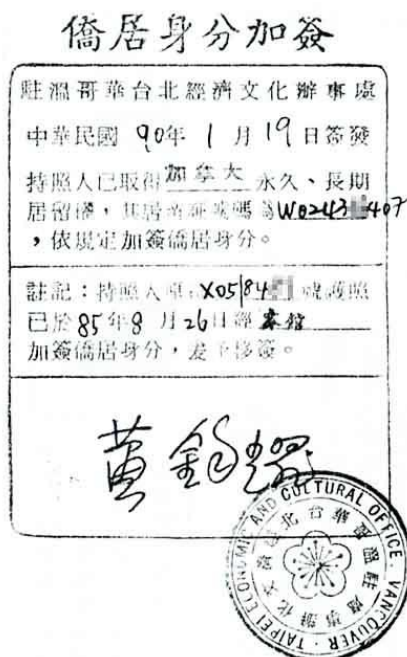 僑居身分加簽
駐溫哥華台北經濟文化辦事處
中華民國 90年 1 月 19 日簽發
持照人已取得 加拿大 永久、長期
居留權,其居留証號碼為W0243 407
,依規定加簽僑居身分。
註記:持照人 X05184 號護照
已於 85年8 月 26日經 本館
加簽僑居身分,茲予移簽。
黃
TAIPEI ECONOMIC AND CULTURAL OFFICE, VANCOUVER
駐溫哥華台北經濟文化辦事處